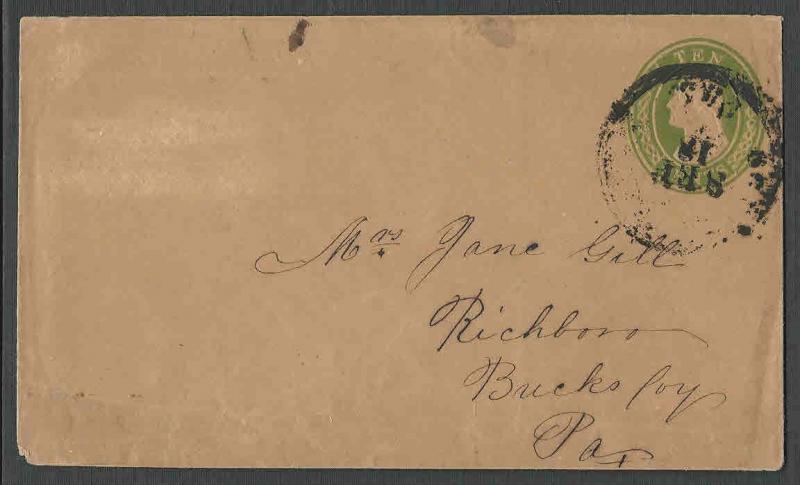 TEN
SEP
18
Mrs Jane Gill
Richboro
Bucks Coy
Pa